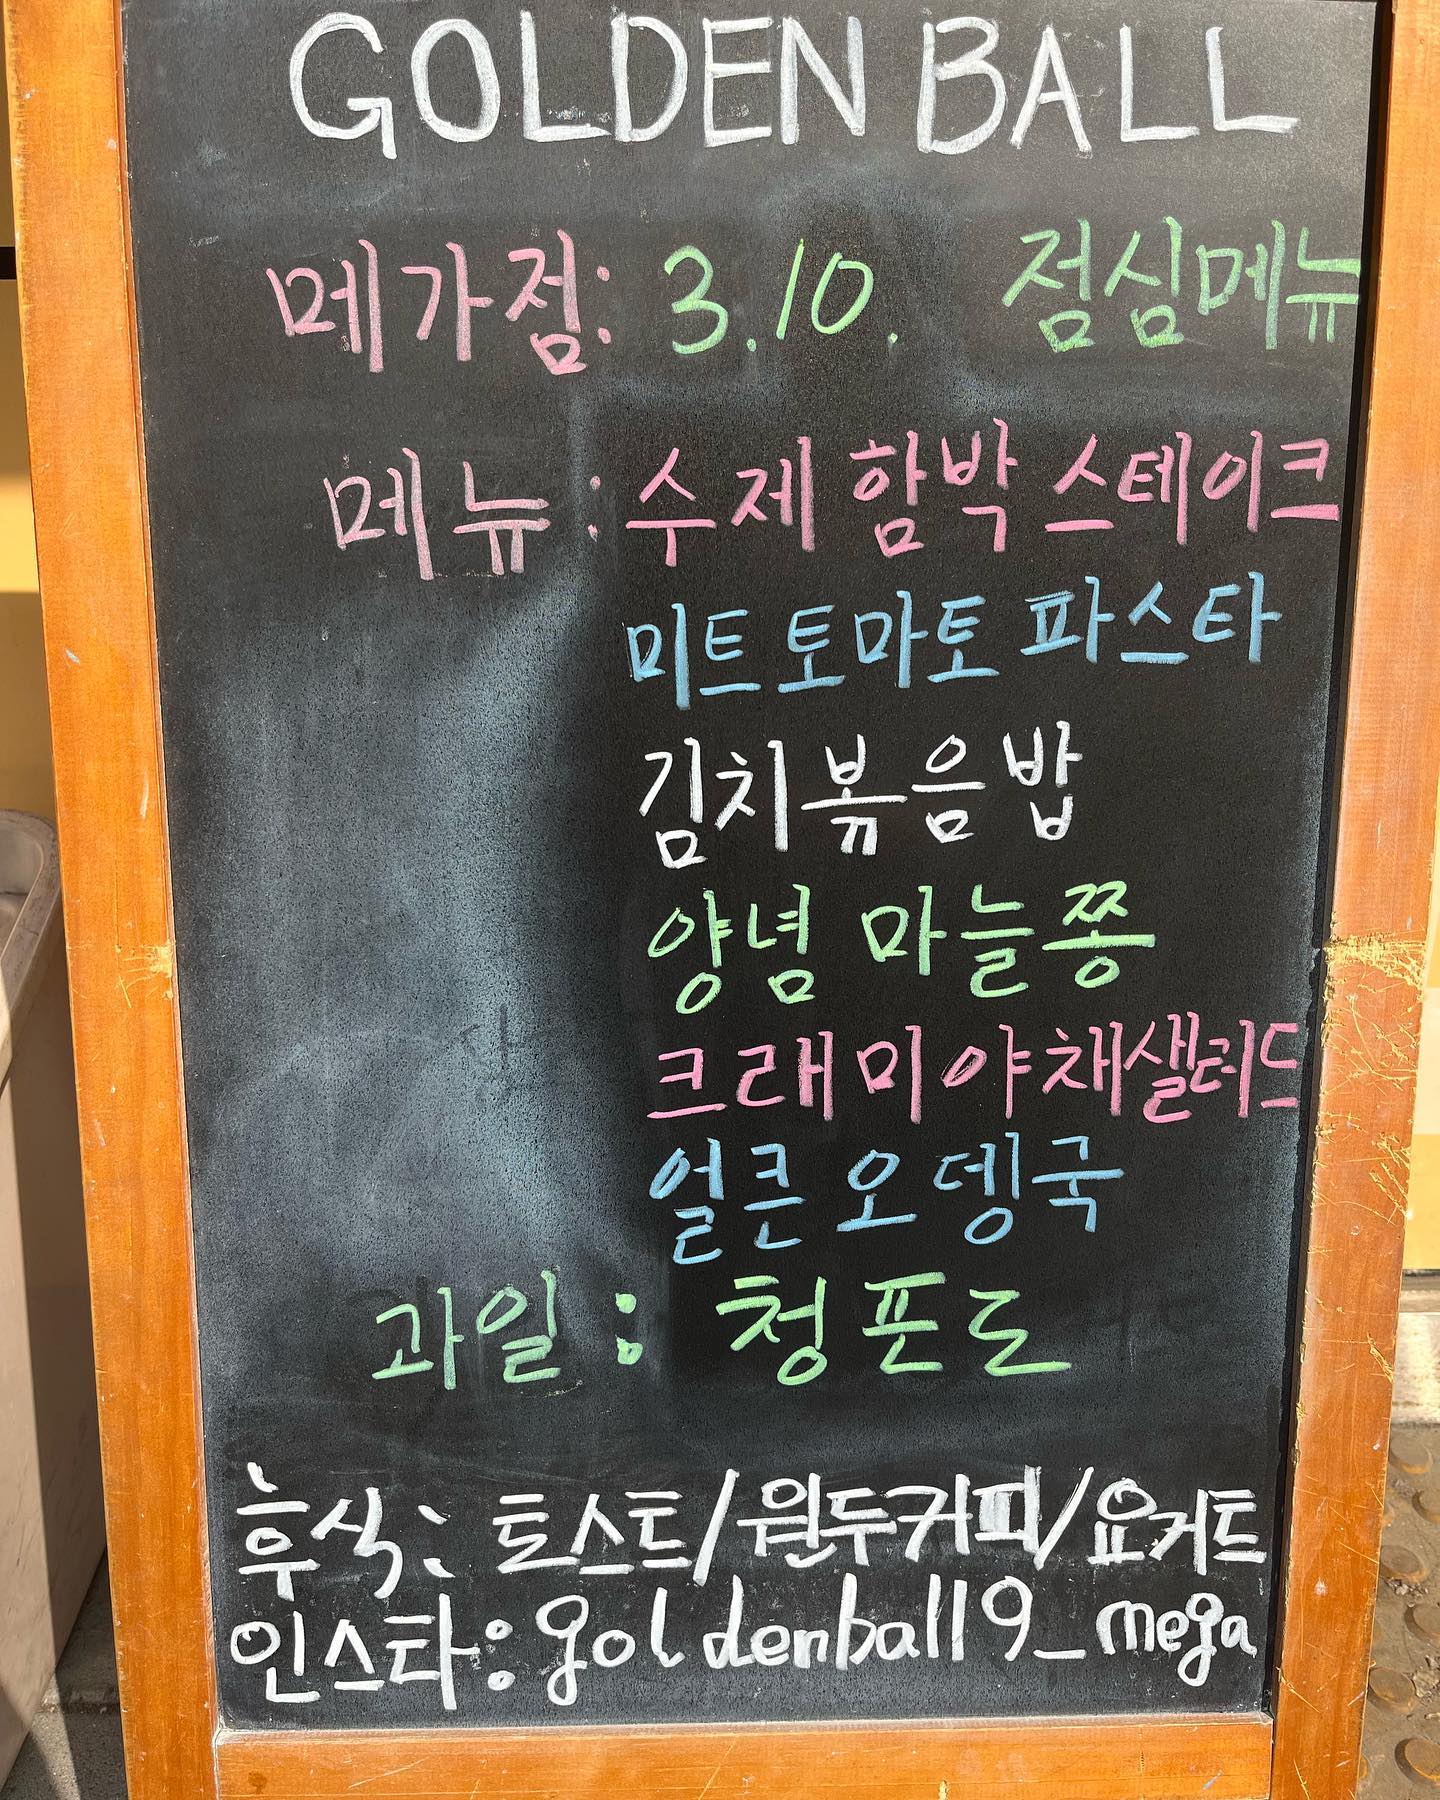 GOLDEN BALL
메가점: 3.10. 점심메뉴
메뉴 : 수제 함박 스테이크
미트 토마토 파스타
김치볶음밥
양념 마늘쫑
크래미 야채샐러드
얼큰 오뎅국
과일 : 청포도
후식: 토스트/원두커피/요거트
인스타: goldenball19_mega